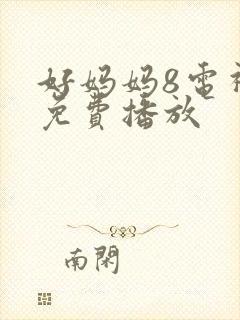 好妈妈8电视
免費播放
南閑